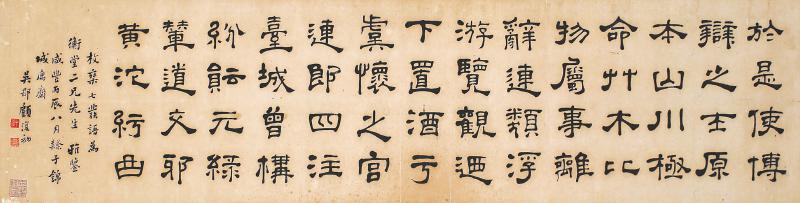 於是使博
辯之士原
本山川極
命艸木比
物屬事離
辭連類浮
游覽觀迺
下置酒亏
虞懷之宮
連郎四注
臺城曾構
紛紜元綠
輦道交邪
黃沱紆曲
枚乘七發語為
衡堂二兄先生 雅鑒
咸豐丙辰八月于錦
城寓
吳郡顧復初